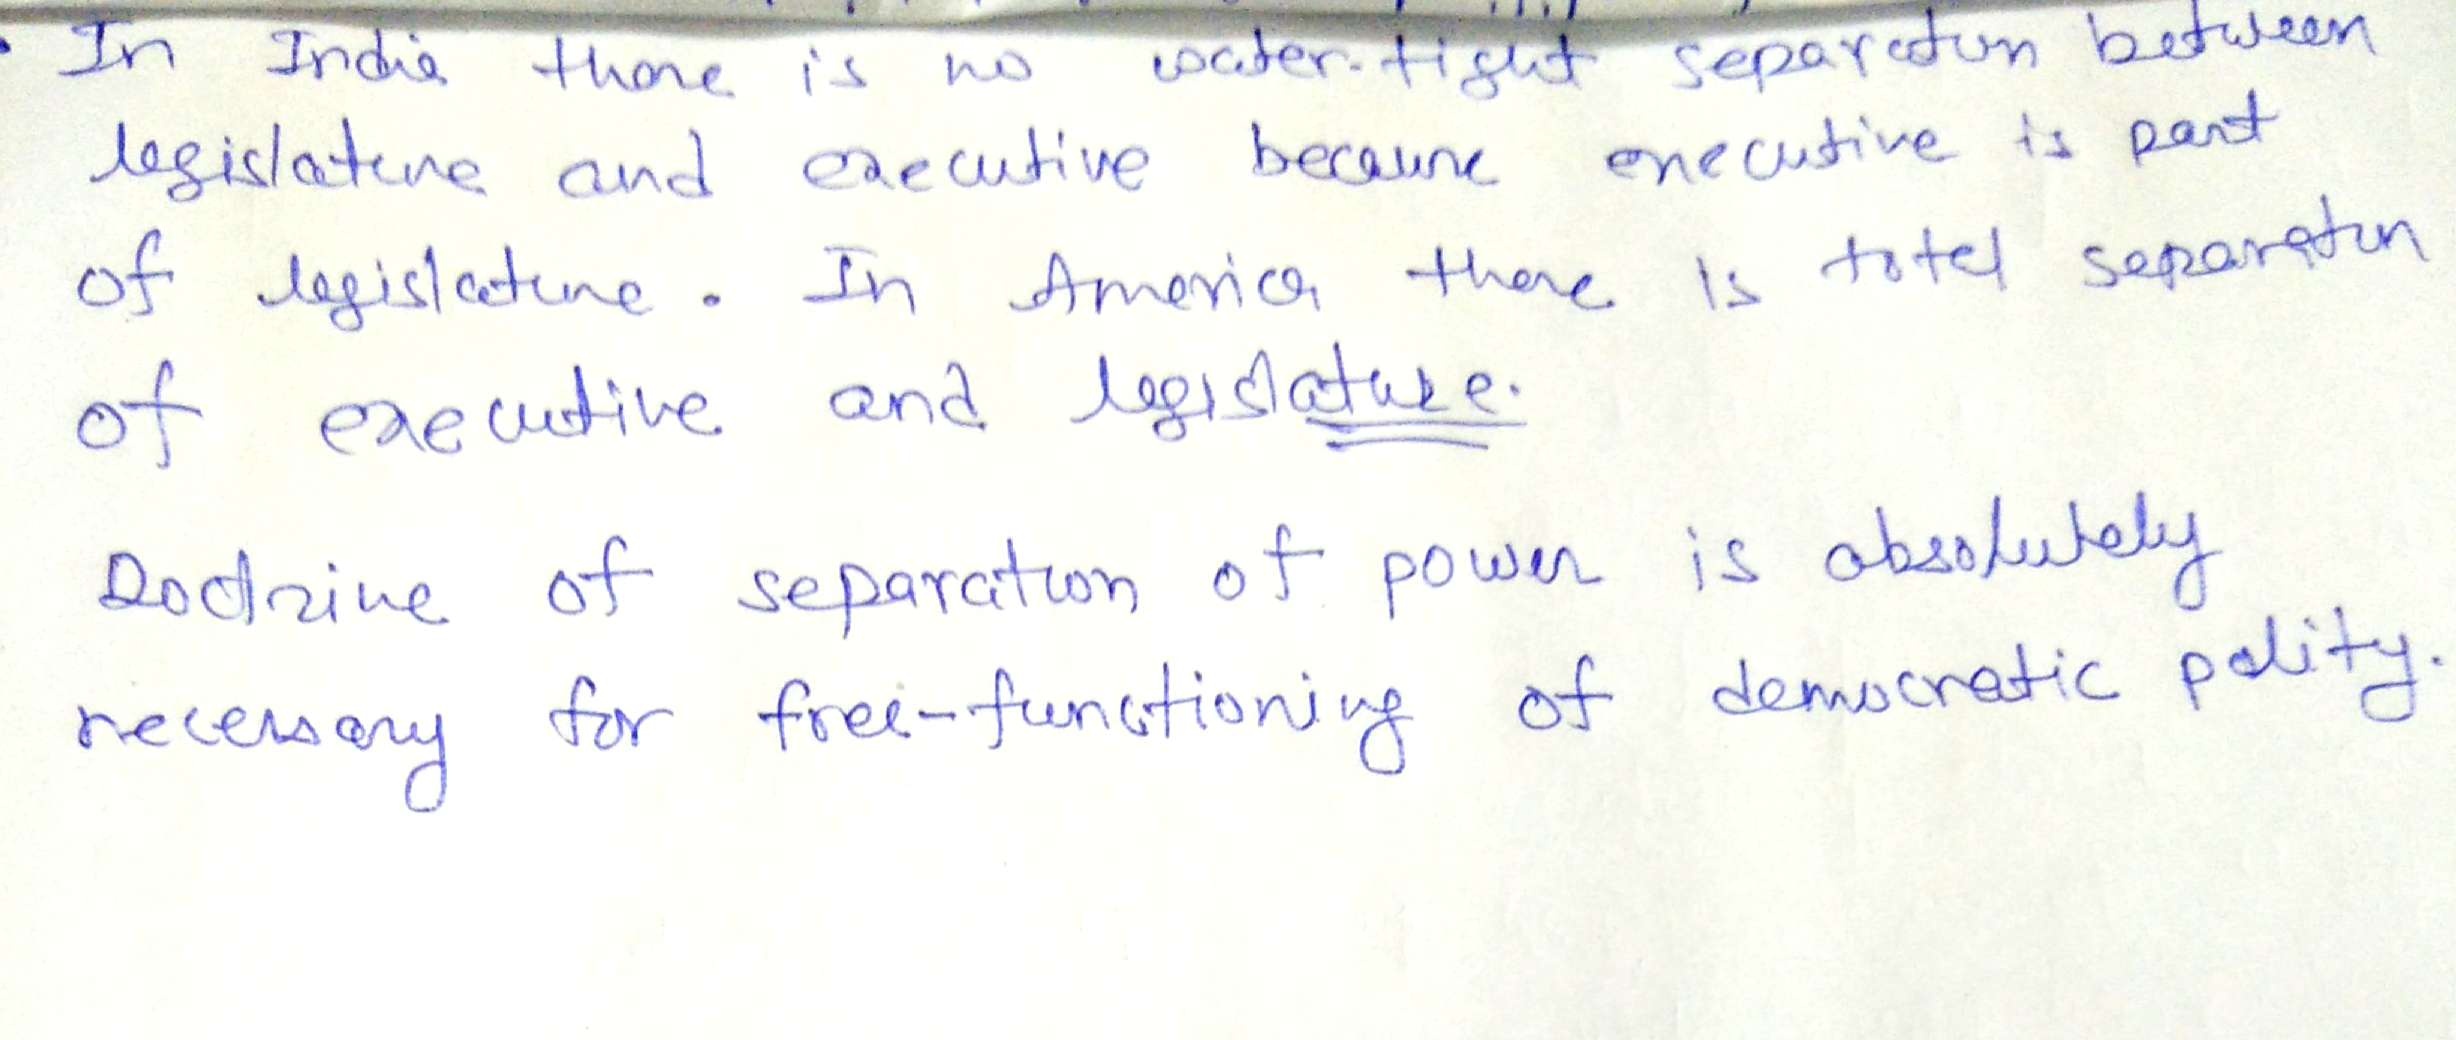 • In India there is no water-tight separation between
legislature and executive because executive is part
of legislature. In America there is total separation
of executive and legislature.
Doctrine of separation of power is absolutely
necessary for free-functioning of democratic polity.